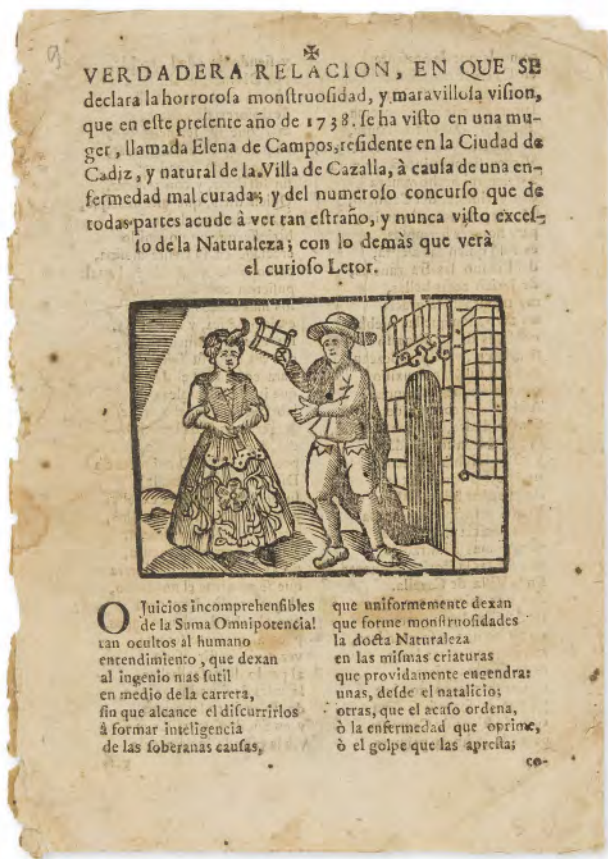 ✠
VERDADERA RELACION, EN QUE SE
declara la horrorosa monstruosidad, y maravillosa vision,
que en este presente año de 1738. se ha visto en una mu-
ger, llamada Elena de Campos, residente en la Ciudad de
Cadiz, y natural de la Villa de Cazalla, à causa de una en-
fermedad mal curada; y del numeroso concurso que de
todas partes acude à ver tan estraño, y nunca visto exces-
so de la Naturaleza; con lo demàs que verà
el curioso Letor.
O Juicios incomprehensibles
de la Suma Omnipotencia!
tan ocultos al humano
entendimiento, que dexan
al ingenio mas sutil
en medio de la carrera,
sin que alcance el discurrirlos
à formar inteligencia
de las soberanas causas,
que uniformemente dexan
que forme monstruosidades
la docta Naturaleza
en las mismas criaturas
que providamente engendra:
unas, desde el natalicio;
otras, que el acaso ordena,
ò la enfermedad que oprime,
ò el golpe que las apresta;
co-